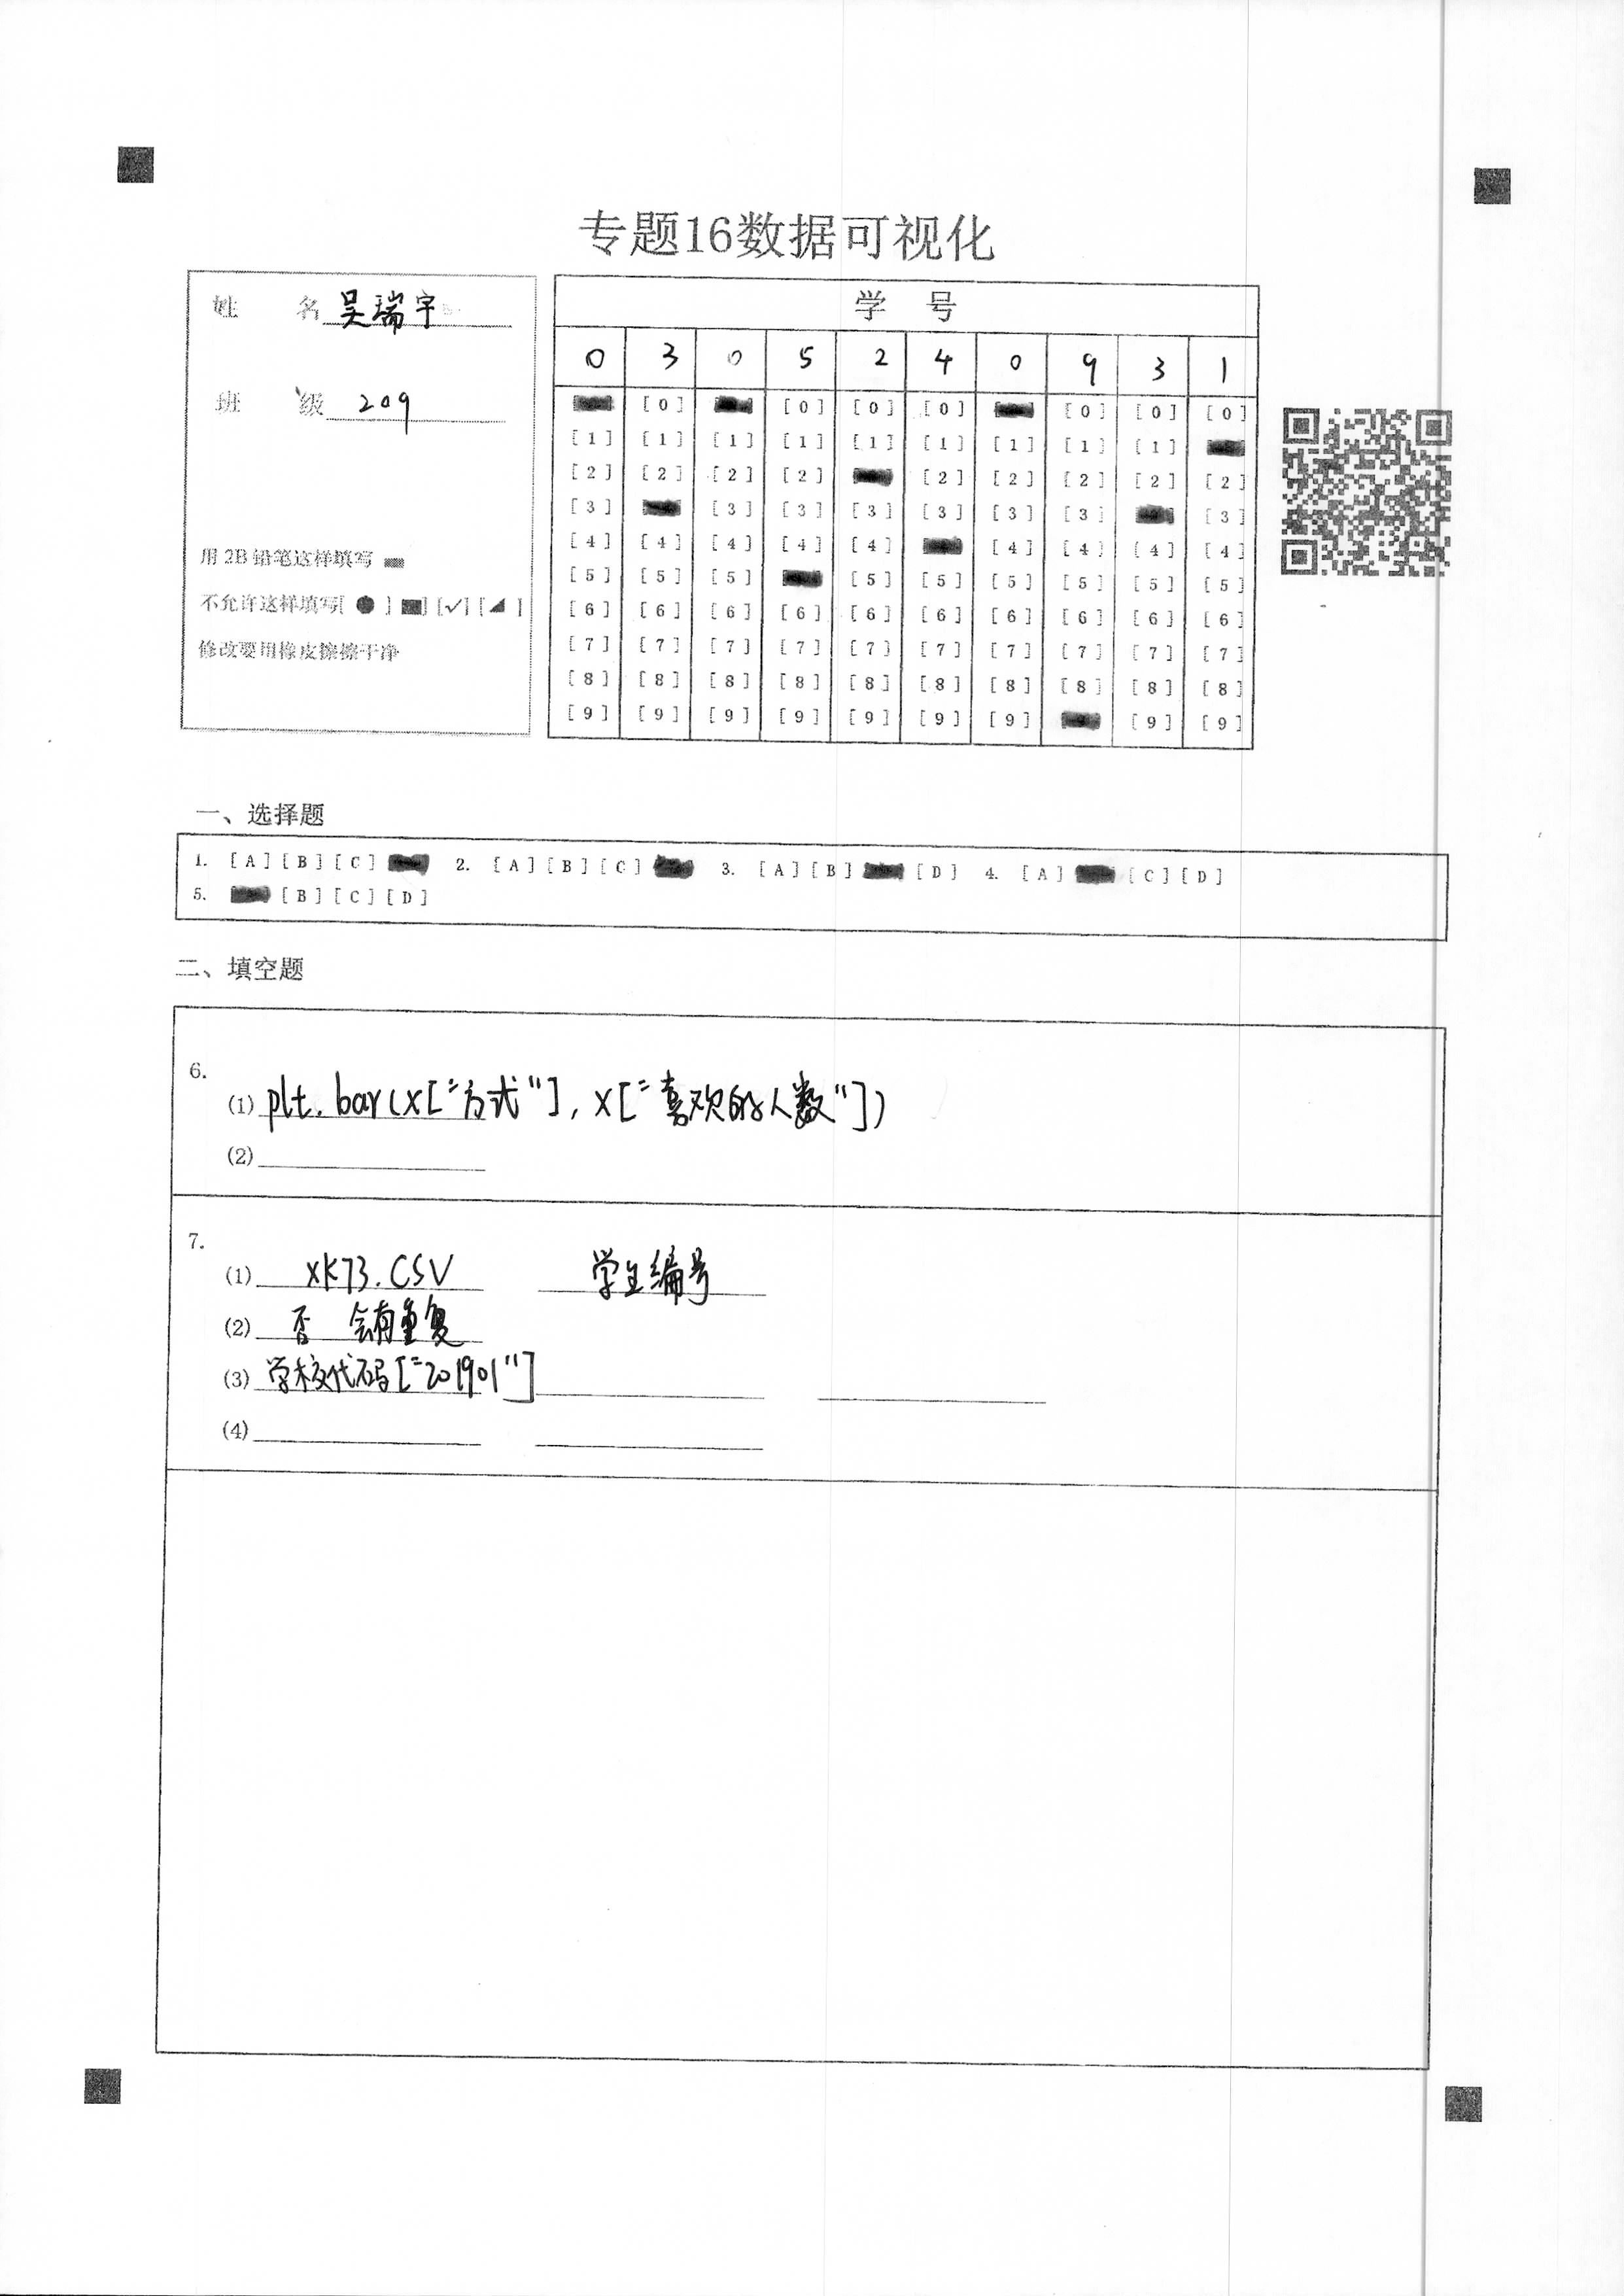 专题16数据可视化
姓 名 吴瑞宇
班 级 209
用 2B 铅笔这样填写
不允许这样填写[ ● ] [■] [✓] [◢ ]
修改要用橡皮擦擦干净
学 号
0 3 0 5 2 4 0 9 3 1
[0] [0] [0] [0] [0] [0] [0]
[1] [1] [1] [1] [1] [1] [1] [1] [1]
[2] [2] [2] [2] [2] [2] [2] [2] [2]
[3] [3] [3] [3] [3] [3] [3] [3]
[4] [4] [4] [4] [4] [4] [4] [4] [4]
[5] [5] [5] [5] [5] [5] [5] [5] [5]
[6] [6] [6] [6] [6] [6] [6] [6] [6] [6]
[7] [7] [7] [7] [7] [7] [7] [7] [7] [7]
[8] [8] [8] [8] [8] [8] [8] [8] [8] [8]
[9] [9] [9] [9] [9] [9] [9] [9] [9]
一、选择题
1. [A] [B] [C] 2. [A] [B] [C] 3. [A] [B] [D] 4. [A] [C] [D]
5. [B] [C] [D]
二、填空题
6.
(1) plt.bar(x["方式"], x["喜欢的人数"])
(2)
7.
(1) xk73.csv 学生编号
(2) 否 会有重复
(3) 学校代码["201901"]
(4)